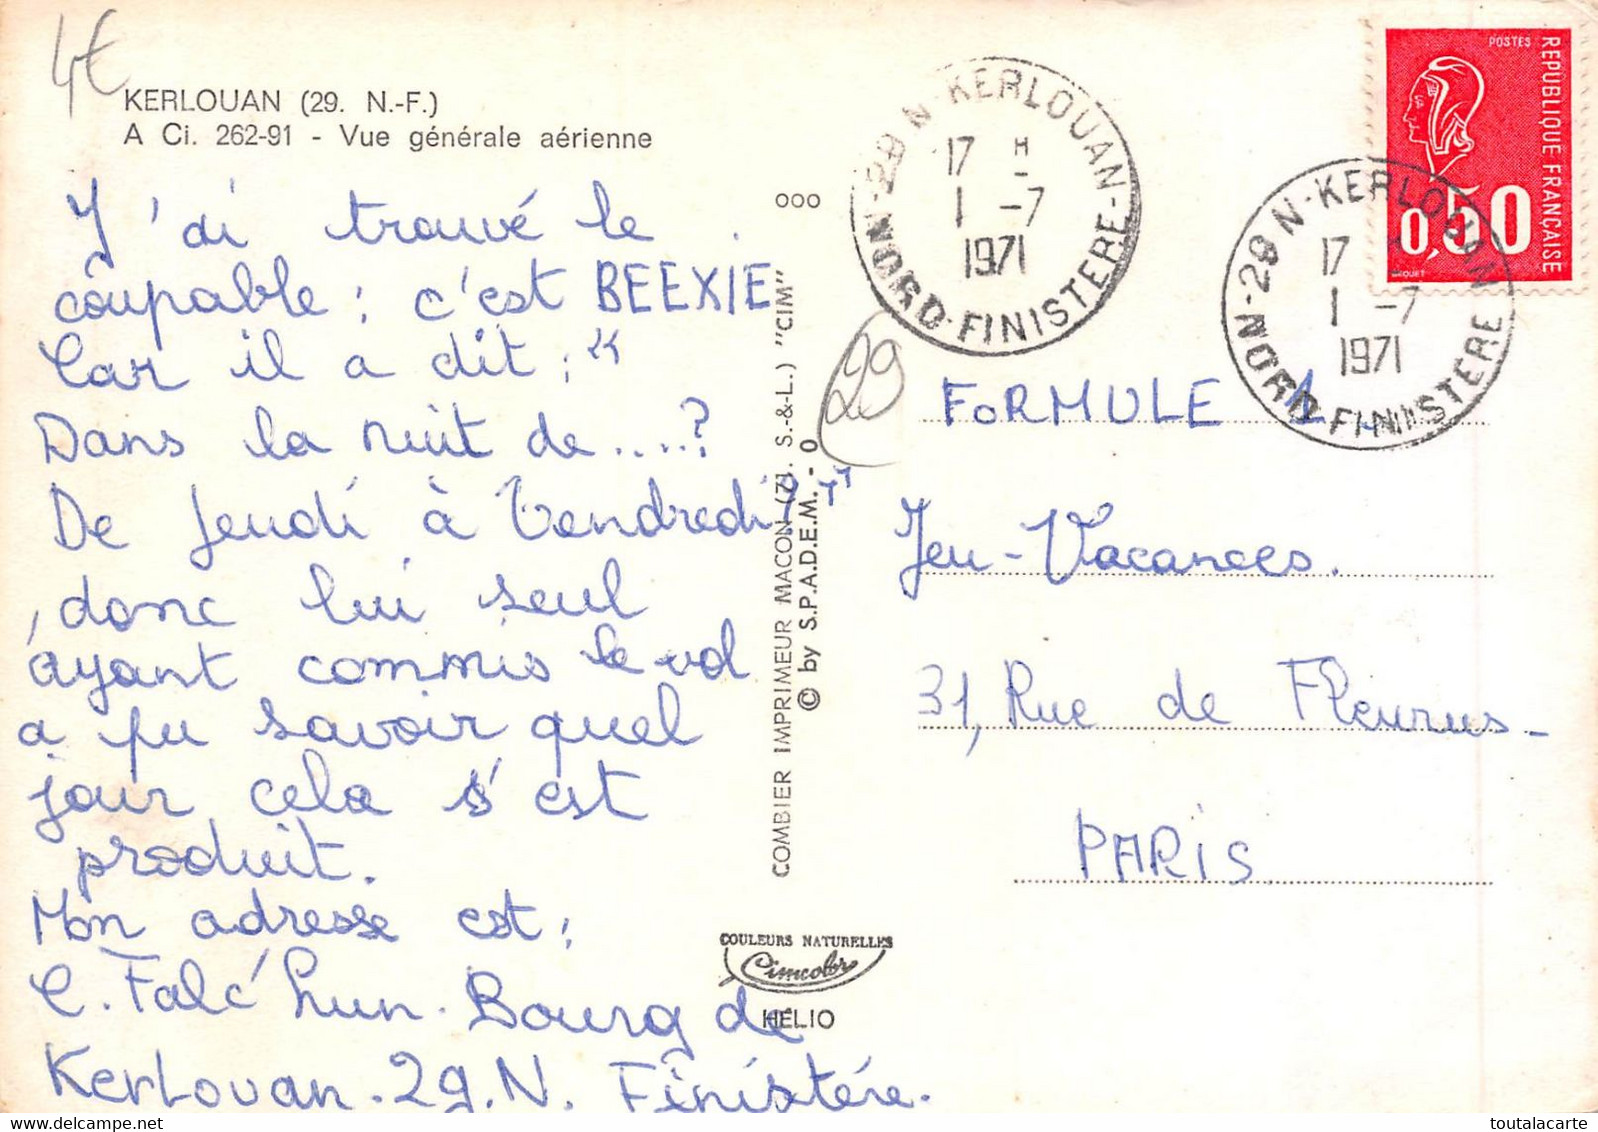 4€
KERLOUAN (29. N.-F.)
A Ci. 262-91 - Vue générale aérienne
J'ai trouvé le
coupable : c'est BEEXIE
Car il a dit : "
Dans la nuit de ....?
De Jeudi à Vendredi ? "
, donc lui seul
ayant commis le vol
a pu savoir quel
jour cela s'est
produit.
Mon adresse est :
C. Falc'hun - Bourg de
Kerlouan - 29.N. Finistére.
ooo
COMBIER IMPRIMEUR MACON (71. S.-&-L.) "CIM"
© by S.P.A.D.E.M. - 0
COULEURS NATURELLES
Cimcolor
HÉLIO
29
29 N - KERLOUAN
17 H
1 -7
1971
NORD-FINISTERE
POSTES
REPUBLIQUE FRANÇAISE
0,50
29 N - KERLOUAN
17
1 -7
1971
NORD-FINISTERE
FORMULE 1.
Jeu-Vacances.
31, Rue de Fleurus-
PARIS
toutalacarte